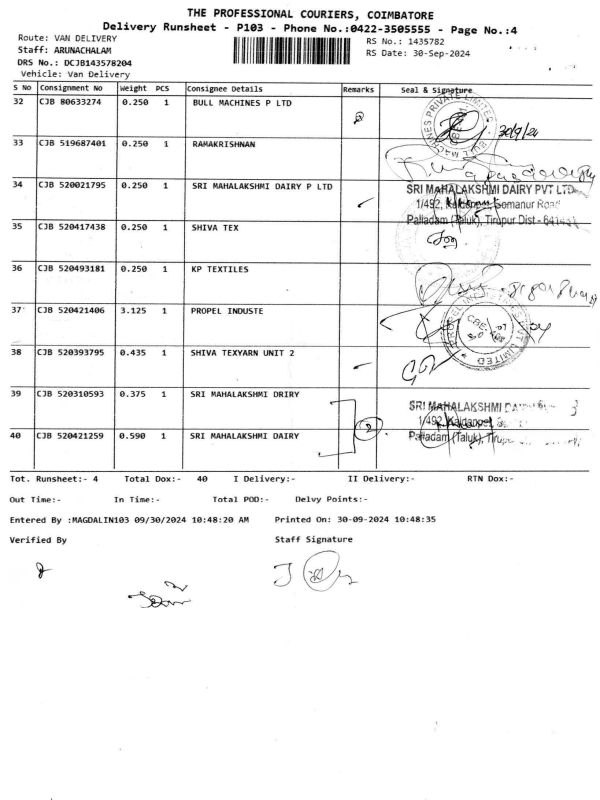 THE PROFESSIONAL COURIERS, COIMBATORE
Delivery Runsheet - P103 - Phone No.:0422-3505555 - Page No.:4
Route: VAN DELIVERY RS No.: 1435782
Staff: ARUNACHALAM RS Date: 30-Sep-2024
DRS No.: DCJB143578204
Vehicle: Van Delivery
S No Consignment No Weight PCS Consignee Details Remarks Seal & Signature
32 CJB 80633274 0.250 1 BULL MACHINES P LTD 30/9/24
33 CJB 519687401 0.250 1 RAMAKRISHNAN
34 CJB 520021795 0.250 1 SRI MAHALAKSHMI DAIRY P LTD SRI MAHALAKSHMI DAIRY PVT LTD
1/492, Kaldanpet, Somanur Road
Palladam (Taluk), Tirupur Dist -
35 CJB 520417438 0.250 1 SHIVA TEX
36 CJB 520493181 0.250 1 KP TEXTILES
37 CJB 520421406 3.125 1 PROPEL INDUSTE
38 CJB 520393795 0.435 1 SHIVA TEXYARN UNIT 2
39 CJB 520310593 0.375 1 SRI MAHALAKSHMI DRIRY SRI MAHALAKSHMI
1/492, Kaldanpet,
40 CJB 520421259 0.590 1 SRI MAHALAKSHMI DAIRY 2 Palladam (Taluk),
Tot. Runsheet:- 4 Total Dox:- 40 I Delivery:- II Delivery:- RTN Dox:-
Out Time:- In Time:- Total POD:- Delvy Points:-
Entered By :MAGDALIN103 09/30/2024 10:48:20 AM Printed On: 30-09-2024 10:48:35
Verified By Staff Signature